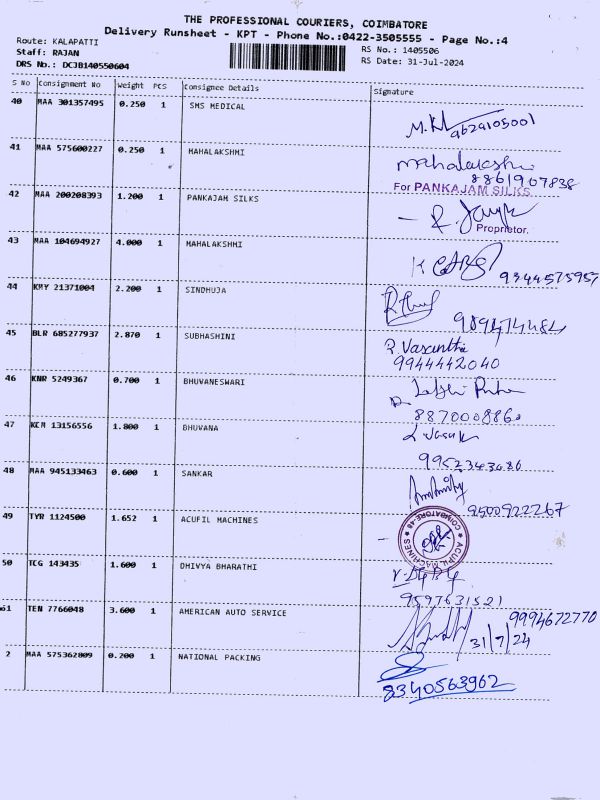 THE PROFESSIONAL COURIERS, COIMBATORE
Delivery Runsheet - KPT - Phone No.:0422-3505555 - Page No.:4
Route: KALAPATTI
Staff: RAJAN
DRS No.: DCJB140550604
RS No.: 1405506
RS Date: 31-Jul-2024
S No Consignment No Weight PCS Consignee Details Signature
40 MAA 301357495 0.250 1 SMS MEDICAL
9629105001
41 MAA 575600227 0.250 1 MAHALAKSHMI
mahalakshmi
8861907838
42 MAA 200208393 1.200 1 PANKAJAM SILKS
For PANKAJAM SILKS
Proprietor.
43 MAA 104694927 4.000 1 MAHALAKSHMI
9344575957
44 KMY 21371004 2.200 1 SINDHUJA
9894714484
45 BLR 685277937 2.870 1 SUBHASHINI
P. Vasantha
9944442040
46 KNR 5249367 0.700 1 BHUVANESWARI
8870008860
47 KCM 13156556 1.800 1 BHUVANA
9952343486
48 MAA 945133463 0.600 1 SANKAR
9500922267
49 TYR 1124500 1.652 1 ACUFIL MACHINES
ACUFIL MACHINES
COIMBATORE-48
50 TCG 143435 1.600 1 DHIVYA BHARATHI
9597631521
61 TEN 7766048 3.600 1 AMERICAN AUTO SERVICE
9994672770
31/7/24
2 MAA 575362809 0.200 1 NATIONAL PACKING
8340563962